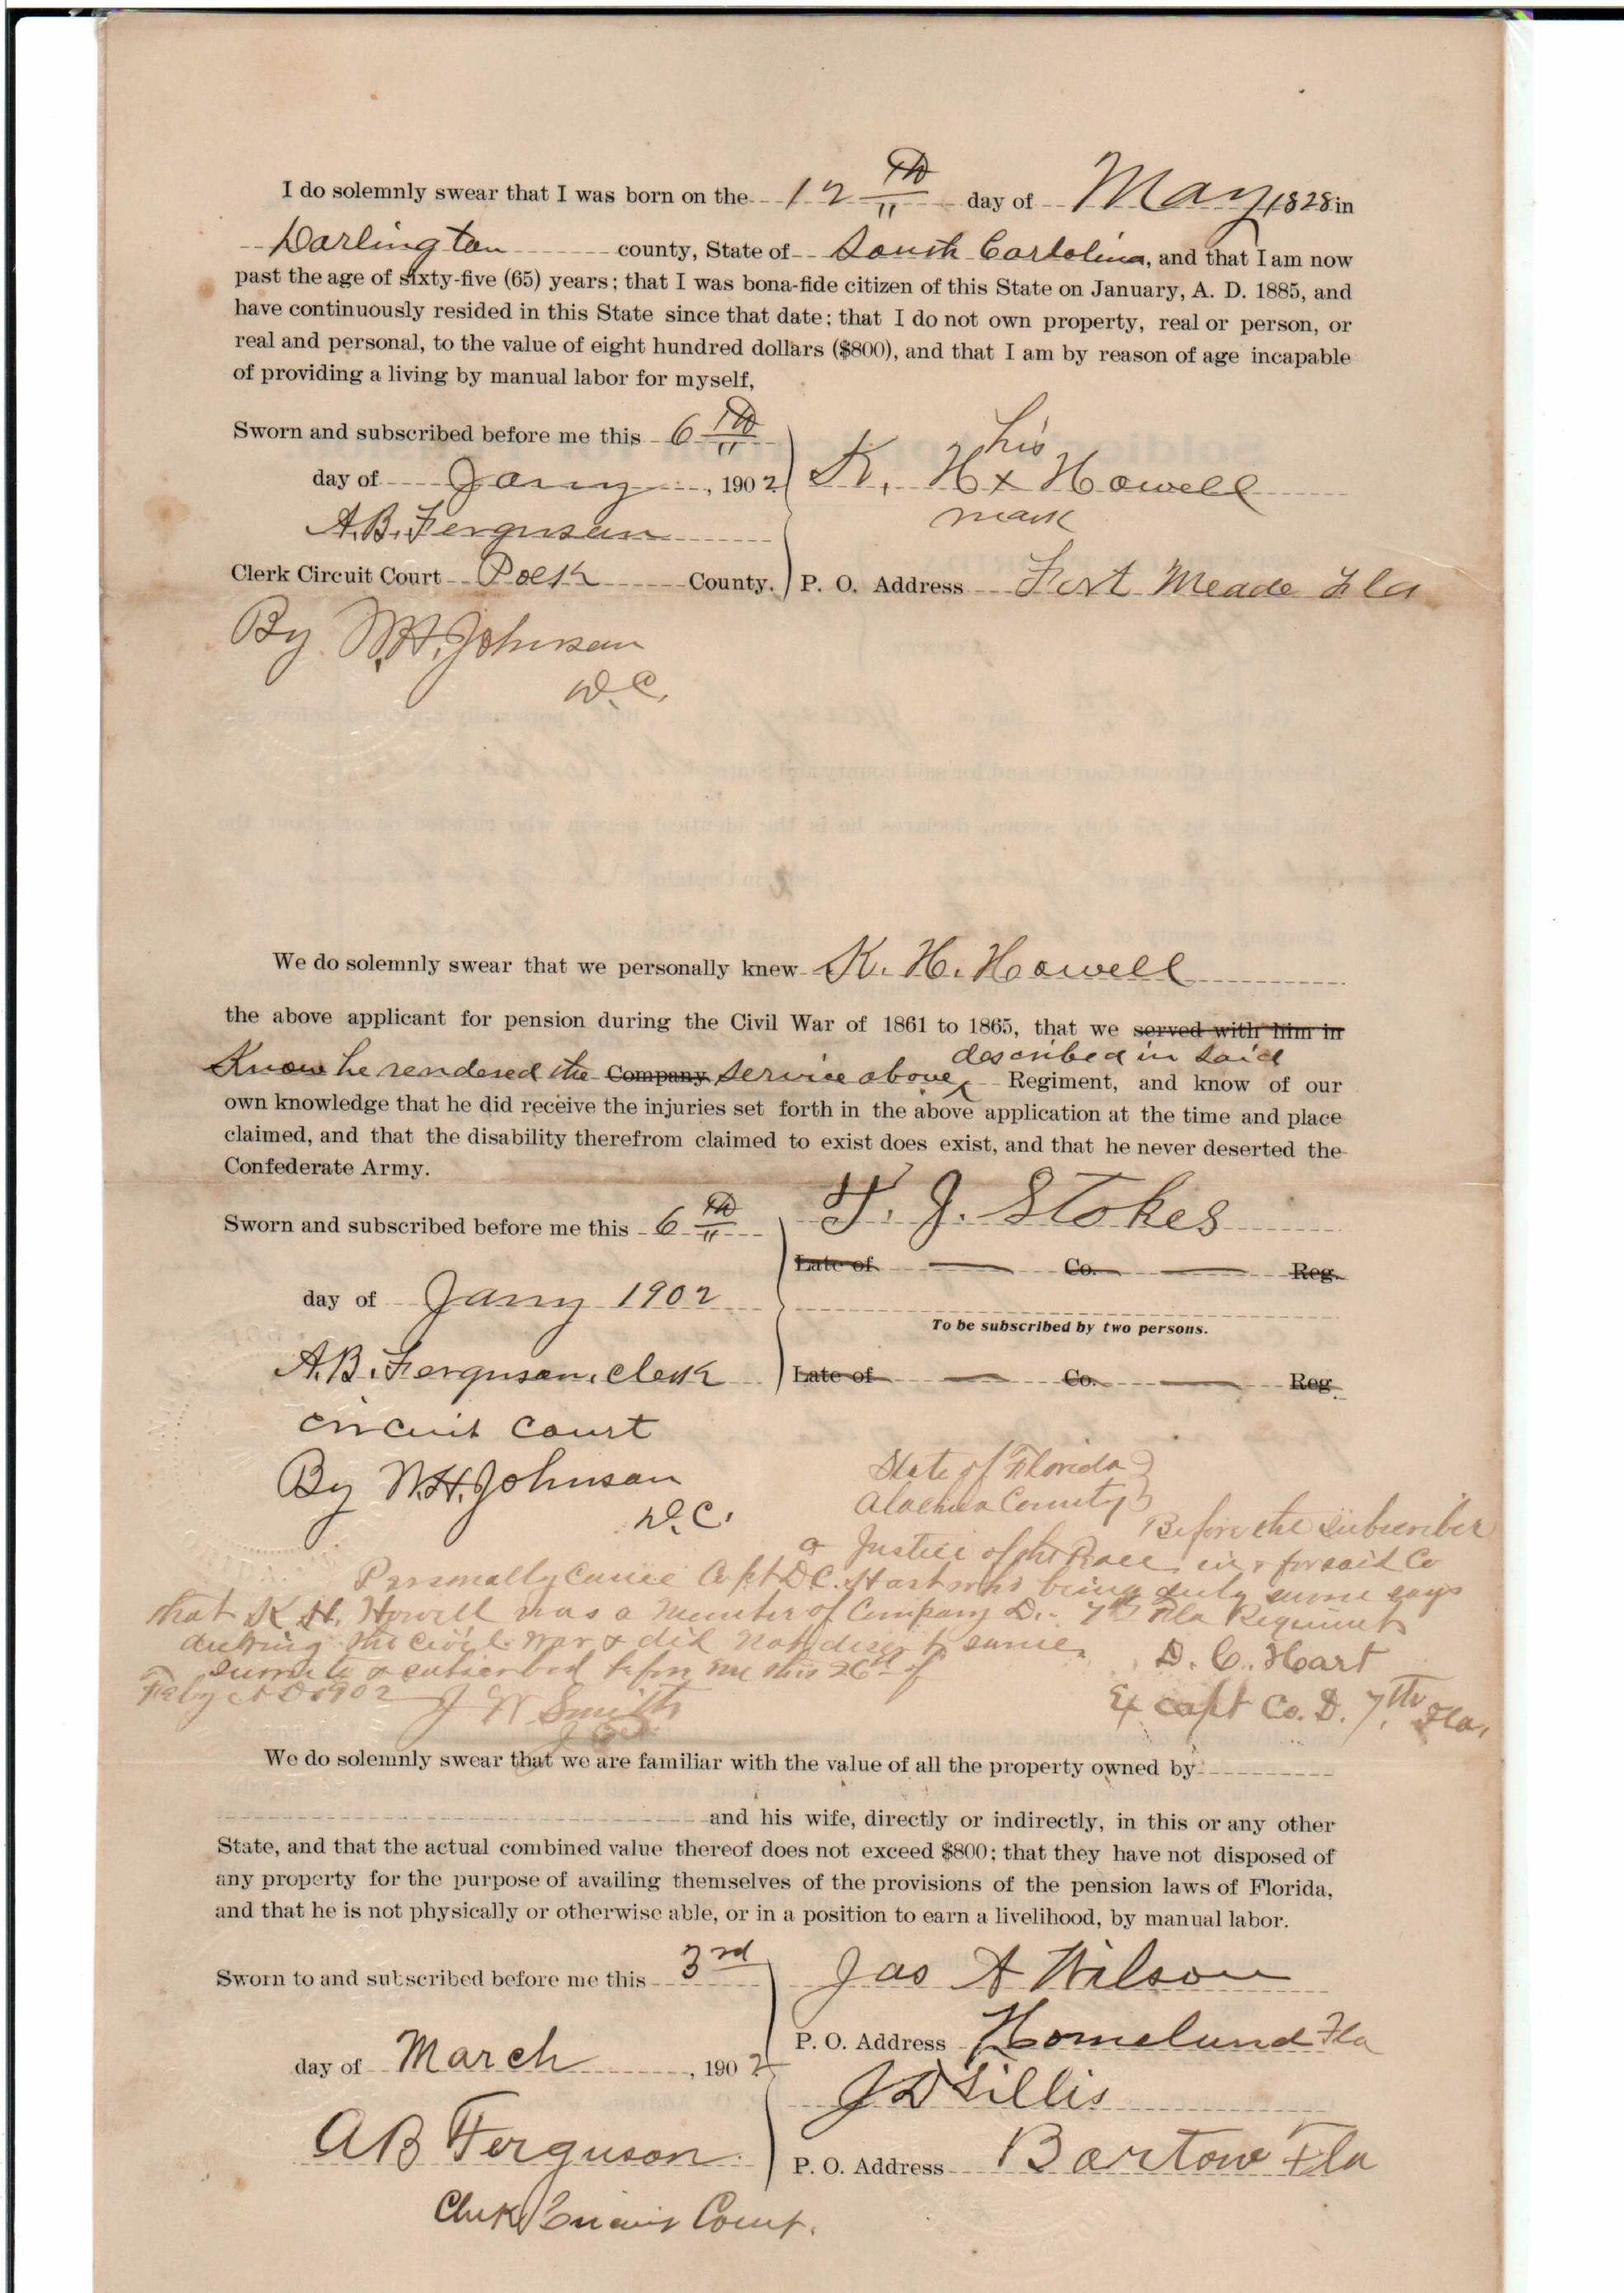 I do solemnly swear that I was born on the 12 TH day of May, 1828 in
Darlington county, State of South Carlolina, and that I am now
past the age of sixty-five (65) years; that I was bona-fide citizen of this State on January, A. D. 1885, and
have continuously resided in this State since that date; that I do not own property, real or person, or
real and personal, to the value of eight hundred dollars ($800), and that I am by reason of age incapable
of providing a living by manual labor for myself,
his
Sworn and subscribed before me this 6 TH
day of Jany, 1902 K. H x Howell
mark
A.B. Ferguson
Clerk Circuit Court Polk County. P. O. Address Fort Meade Fla
By W.H. Johnson
D.C.
We do solemnly swear that we personally knew K. H. Howell
the above applicant for pension during the Civil War of 1861 to 1865, that we served with him in
described in said
Know he rendered the Company service above Regiment, and know of our
own knowledge that he did receive the injuries set forth in the above application at the time and place
claimed, and that the disability therefrom claimed to exist does exist, and that he never deserted the
Confederate Army.
Sworn and subscribed before me this 6 TH T. J. Stokes
Late of Co. Reg.
day of Jany 1902
To be subscribed by two persons.
A.B. Ferguson, Clerk Late of Co. Reg.
Circuit Court
By W.H. Johnson
D.C.
State of Florida
Alachua County
Before the subscriber
a Justice of the Peace in & for said Co
Personally came Capt D C. Hart who being duly sworn says
that K H. Howell was a Member of Company D. 7th Fla Regiment
during the civil war & did not desert same.
D. C. Hart
sworn to & subscribed before me this 26th of
Feby A D 1902 J W Smith
J P
Ex capt Co. D. 7th Fla,
We do solemnly swear that we are familiar with the value of all the property owned by
and his wife, directly or indirectly, in this or any other
State, and that the actual combined value thereof does not exceed $800; that they have not disposed of
any property for the purpose of availing themselves of the provisions of the pension laws of Florida,
and that he is not physically or otherwise able, or in a position to earn a livelihood, by manual labor.
Sworn to and subscribed before me this 3rd Jas A Wilson
P. O. Address Homelund Fla
day of March, 1902
J D Gillis
A B Ferguson
P. O. Address Bartow Fla
Clerk Circuit Court.